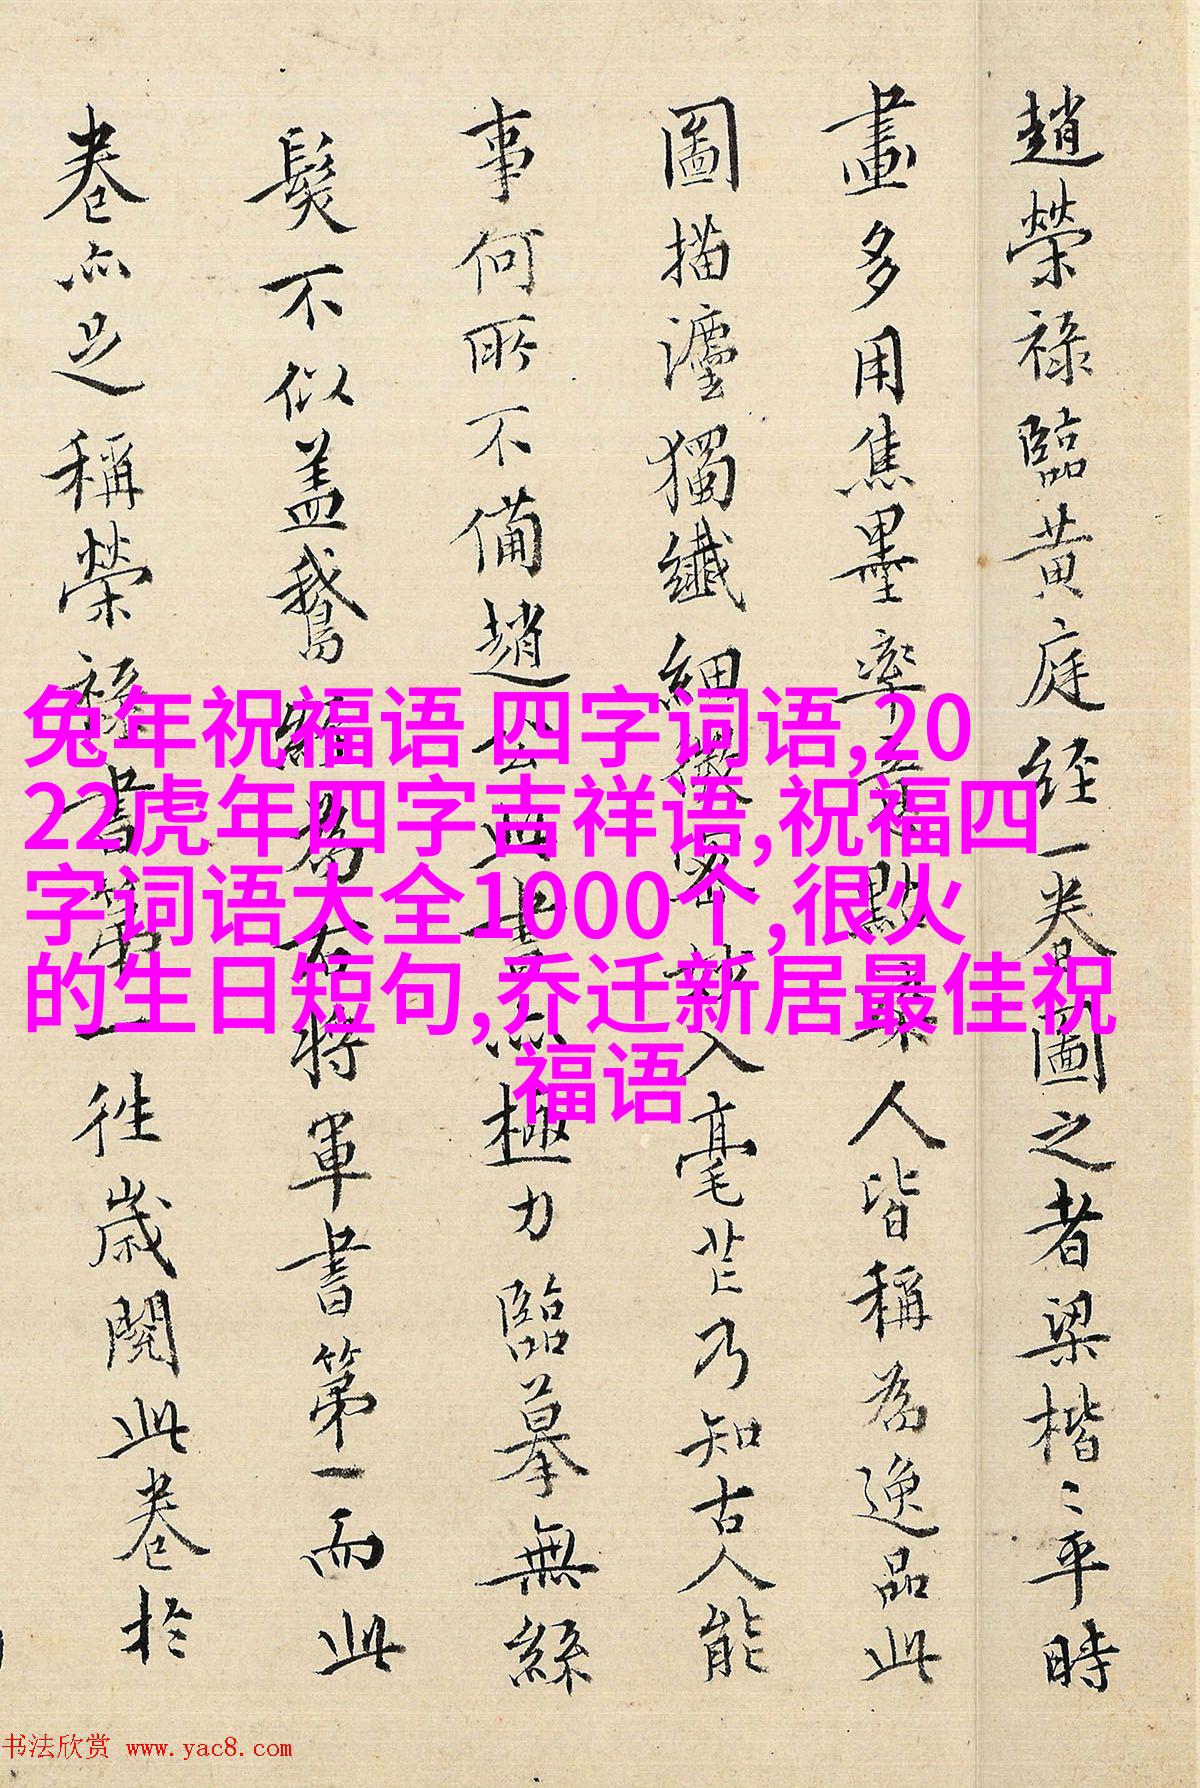 趙榮祿臨黃庭經一卷圖之者梁楷〻平時
畫多用焦墨率意點染人皆稱為逸品此
圖描獨纖細微密入毫芒乃知古人能
事何所不備趙公此書亦極力臨摹無絲
髮不似盖鵝經為右將軍書第一而此
卷亦足稱榮祿書第一往歲閱此卷於
兔年祝福语 四字词语,20
22虎年四字吉祥语,祝福四
字词语大全1000个,很火
的生日短句,乔迁新居最佳祝
福语
书法欣赏 www.yac8.com